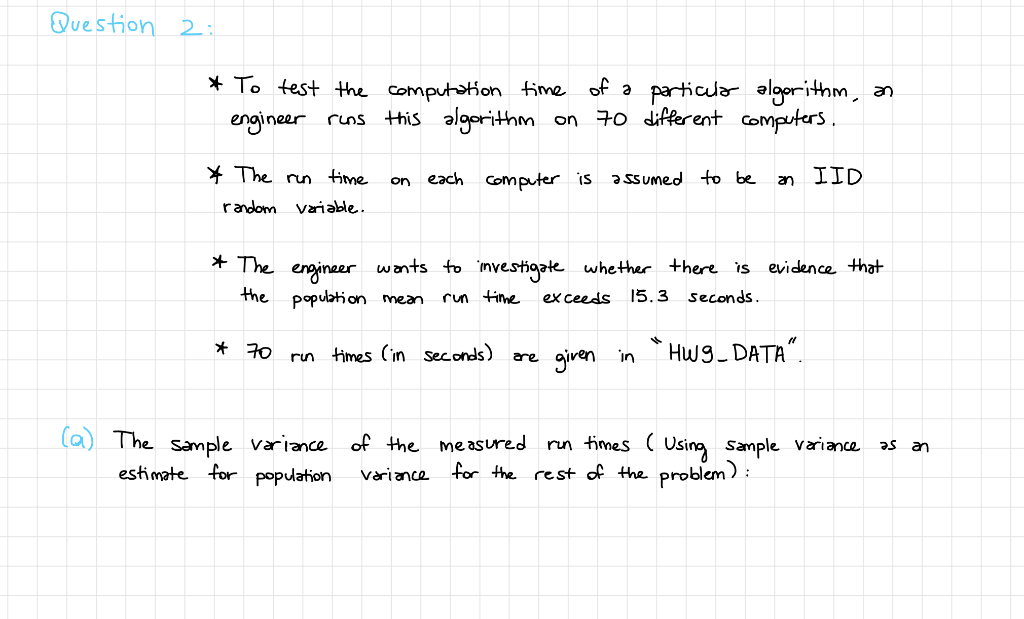 Question 2:
* To test the computation time of a particular algorithm, an
engineer runs this algorithm on 70 different computers.
* The run time on each computer is assumed to be an IID
random variable.
* The engineer wants to investigate whether there is evidence that
the population mean run time exceeds 15.3 seconds.
* 70 run times (in seconds) are given in "HW9_DATA".
(a) The sample variance of the measured run times (Using sample variance as an
estimate for population variance for the rest of the problem):